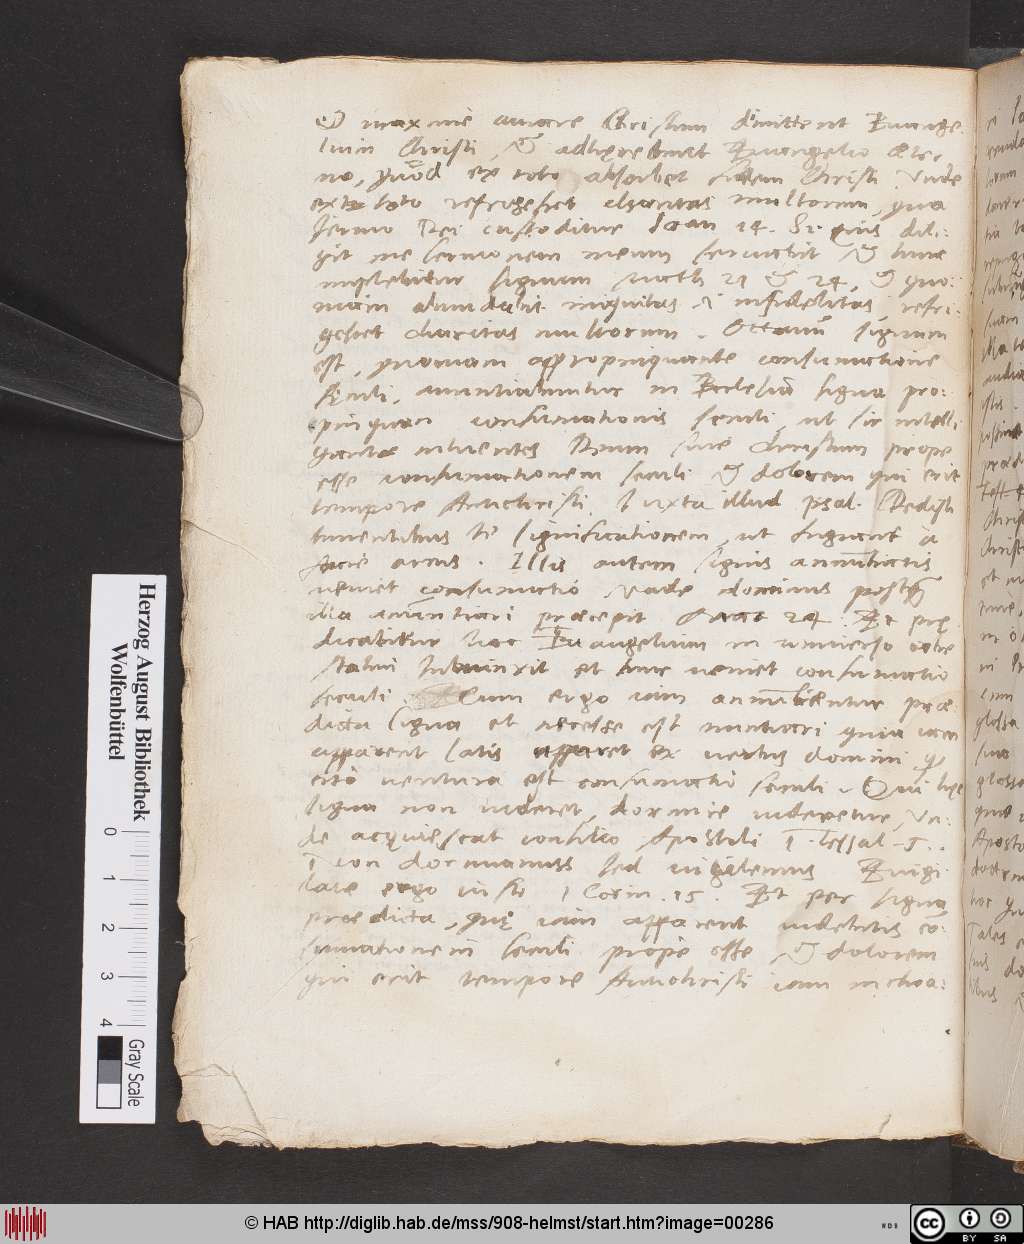 & maxime amare Christum dimittent Euange-
lium Christi, & adherebunt Euangelio æter-
no, quod ex toto absorbet fidem Christi Vnde
ex toto refrigescet charitas multorum, qua
sermo Dei custoditur Ioan 14. Si quis dili-
git me sermonem meum seruabit & tunc
implebitur signum math 21 & 24, & quo-
niam abundabit iniquitas i infidelitas, refri-
gescet charitas multorum. Octauum signum
est, quoniam appropinquante consumatione
seculi, annuntiabuntur in Ecclesia signa pro-
pinquae consumationis seculi, ut sic intelli
gentes siue Christum prope
esse consumationem seculi & dolorem qui erit
tempore Antichristi. Iuxta illud psal. Dedisti
timentibus te significationem, ut fugiant a
facie arcus. Illis autem signis annuntiatis
ueniet consumatio vnde dominus postquam
illa annuntiari præcepit 24. Et pre
dicabitur hoc Euangelium in uniuerso orbe
statim subiunxit et tunc ueniet consumatio
seculi Cum ergo iam annuntientur præ-
dicta signa et necesse est nuntiari quia iam
apparent satis apparet ex uerbis domini quod
cito uentura est consumatio seculi. Qui hec
signa non uideret, dormire uideretur, Vn-
de acquiescat consilio Apostoli 1 Tessal. 5.
Non dormiamus sed uigilemus Euigi
late ergo iusti 1 Corin. 15. Et per signa
prædicta, que iam apparent uidebitis co-
sumationem seculi prope esse & dolorem
qui erit tempore Antichristi iam inchoa-
Herzog August Bibliothek
Wolfenbüttel
0 1 2 3 4
Gray Scale
© HAB http://diglib.hab.de/mss/908-helmst/start.htm?image=00286
WDB
cc BY SA